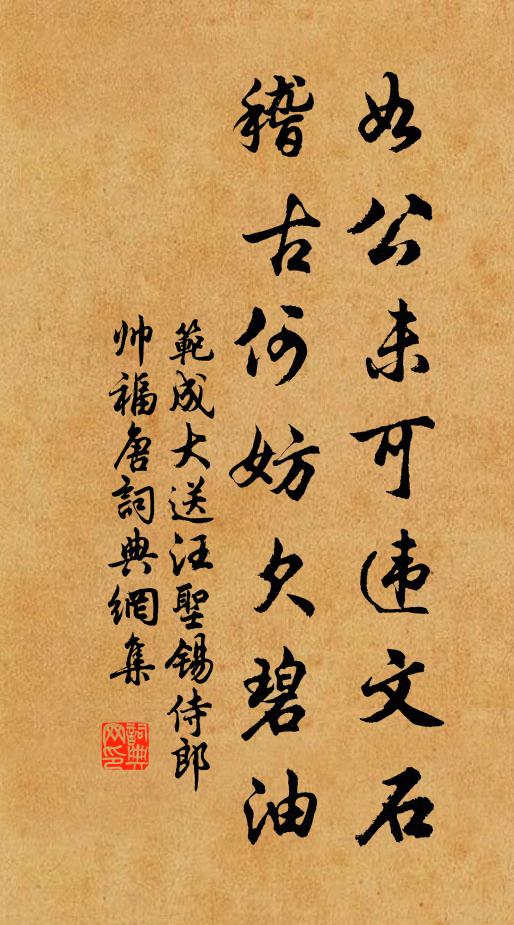 如公未可违文石
稽古何妨欠碧油
範成大送汪聖錫侍郎
帅福唐詞典網集
詞典網印